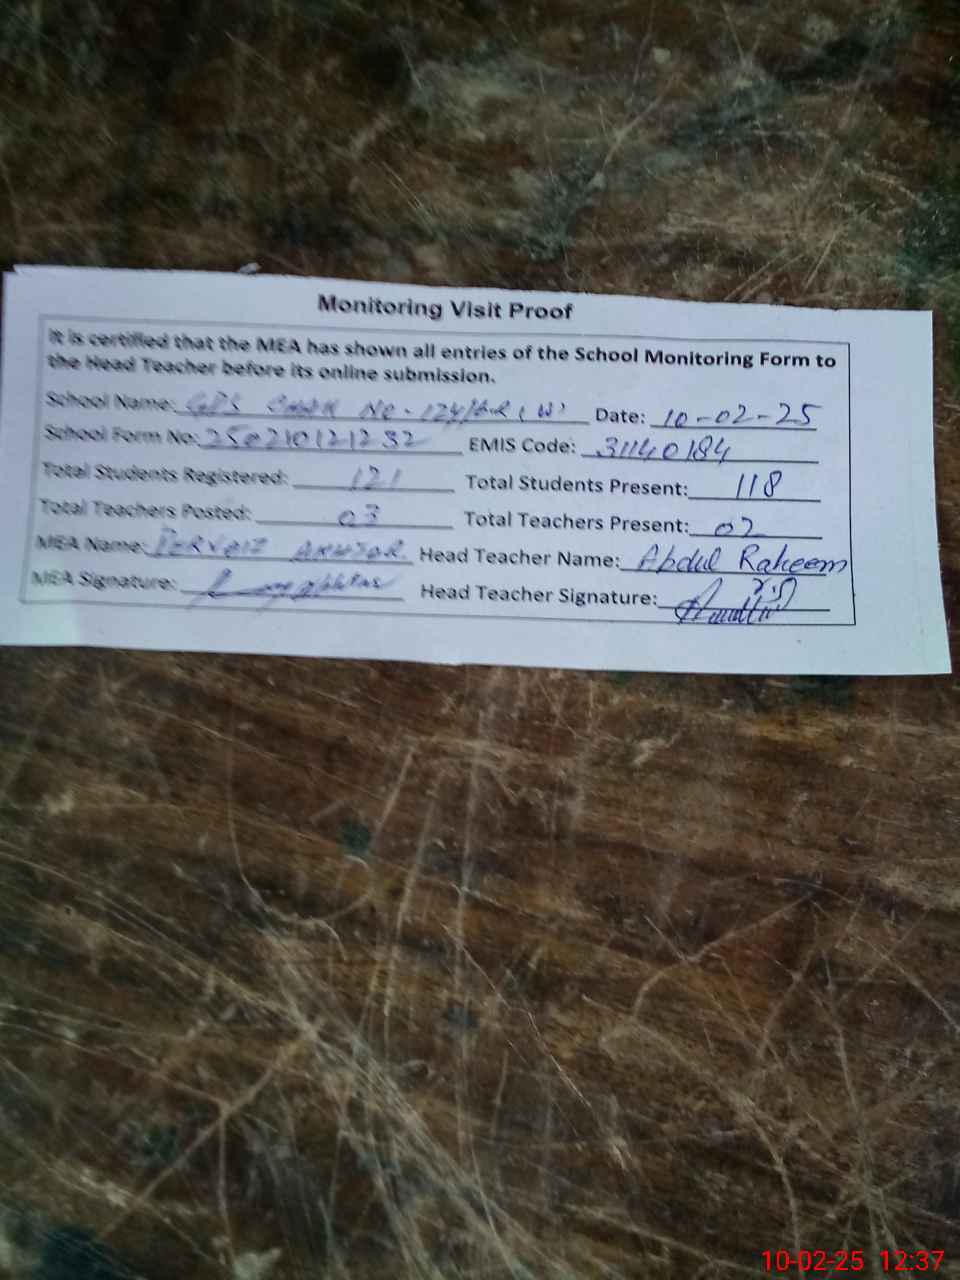 Monitoring Visit Proof
It is certified that the MEA has shown all entries of the School Monitoring Form to
the Head Teacher before its online submission.
School Name: GPS CHAK NO. 124/6-R (W) Date: 10-02-25
School Form No: 2502101212 32 EMIS Code: 31140184
Total Students Registered: 121 Total Students Present: 118
Total Teachers Posted: 03 Total Teachers Present: 02
MEA Name: PERVAIZ Head Teacher Name: Abdul Raheem
MEA Signature: Head Teacher Signature:
10-02-25 12:37